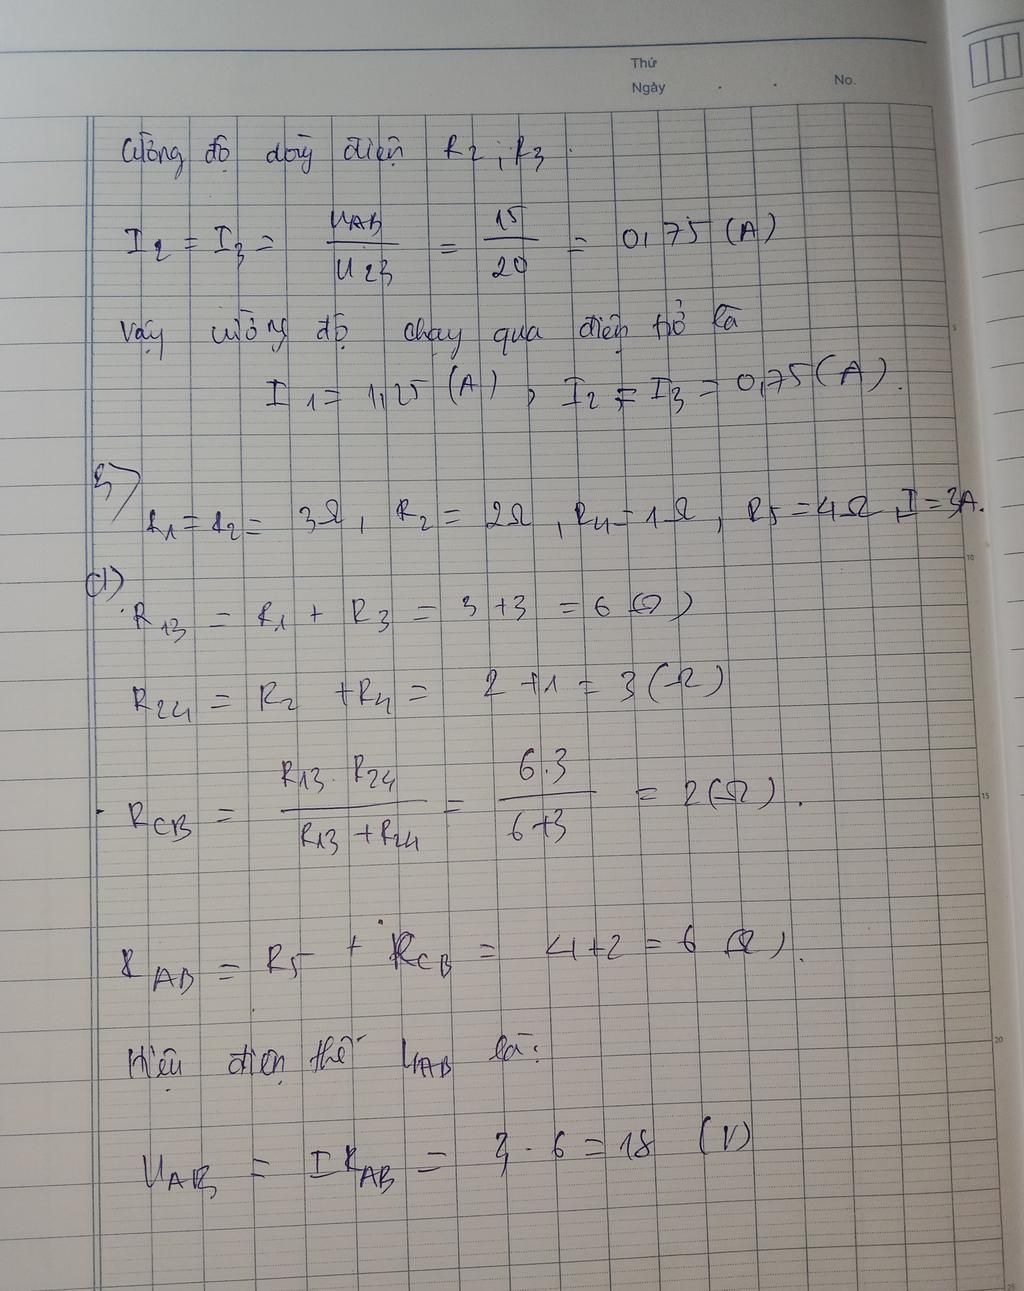 Thứ
Ngày . . No.
Cường độ dòng điện R2, R3.
I2 = I3 = UAB / U23 = 15 / 20 = 0,75 (A)
Vậy cường độ chạy qua điện trở là
I1 = 1,25 (A), I2 = I3 = 0,75 (A).
5)
R1 = R2 = 3Ω, R2 = 2Ω, R4 = 1Ω, R5 = 4Ω, I = 3A.
R13 = R1 + R3 = 3 + 3 = 6 (Ω)
R24 = R2 + R4 = 2 + 1 = 3 (Ω)
RCB = R13 . R24 / R13 + R24 = 6.3 / 6+3 = 2 (Ω).
RAB = R5 + RCB = 4 + 2 = 6 (Ω).
Hiệu điện thế UAB là:
UAB = I RAB = 3 . 6 = 18 (V)
5
10
15
20